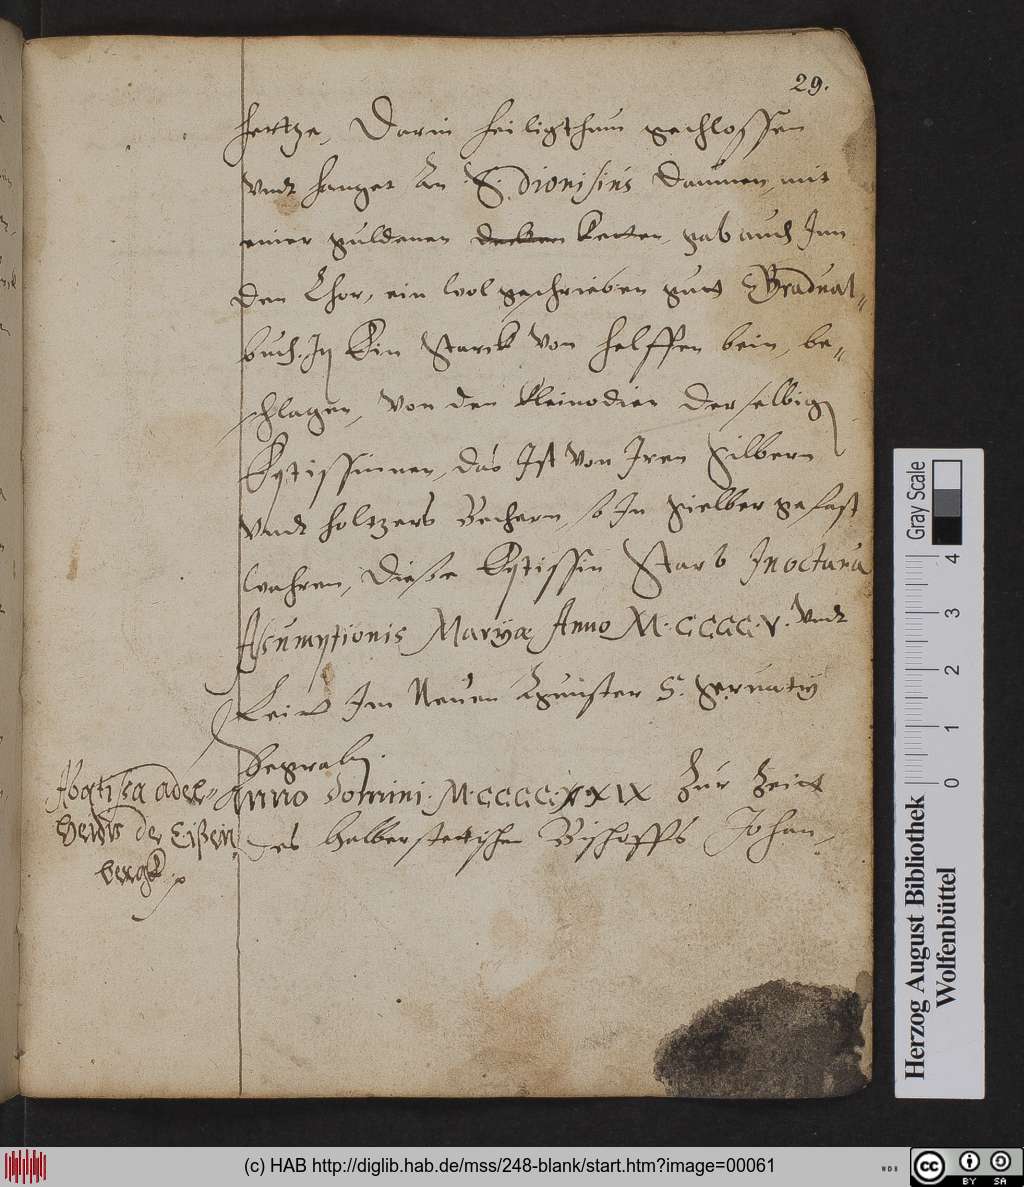 29.
hertze, Darin heiligthum geschlossen
Vndt hanget An S. Dionisius daumen, mit
einer guldenen Ketten, gab auch Inn
den Chor, ein wol geschrieben gutt Gradual-
buch. In Ein starck von helffen bein, be-
schlagen, Von den kleinodien der selbig
Eptissinnen, das Ist von Iren silbern
Vndt holtzers Bechern, so In sielber gefast
wahren, Diese Eptissin Starb In octaua
Assumptionis Mariæ Anno M.CCCC.V. Vndt
Leit Im Neuen Munster S. Seruatij
Begraben.
Anno Domini M.CCCC.XXIX Zur Zeitt
des Halberstettischen Bischoffs Johan-
Abatissa adel-
heidt der Eißen
bergk
Gray Scale
0 1 2 3 4
Herzog August Bibliothek
Wolfenbüttel
(c) HAB http://diglib.hab.de/mss/248-blank/start.htm?image=00061
WDB
cc
BY SA